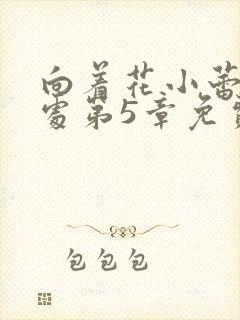 向着花小蕾
处第5章免费
包包包